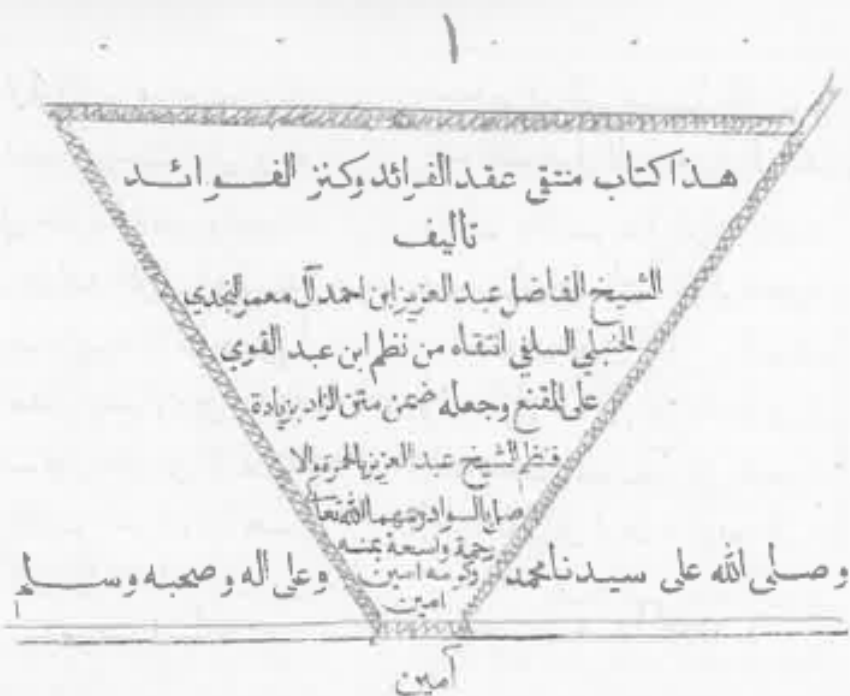 ١
هذا كتاب منتقى عقد الفرائد وكنز الفوائد
تأليف
الشيخ الفاضل عبد العزيز ابن احمد آل معمر النجدي
الحنبلي السلفي انتقاه من نظم ابن عبد القوي
على المقنع وجعله ضمن متن الزاد بزيادة
فنظم الشيخ عبد العزيز بالحمرة والا
صل بالسواد رحمهما الله تعالى
رحمة واسعة بمنه
وكرمه امين
امين
وصلى الله على سيدنا محمد وعلى اله وصحبه وسلم
آمين